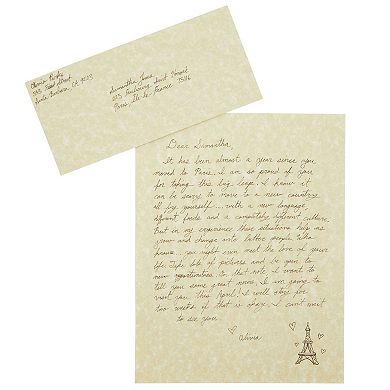 Olivia
Street
Santa Barbara, CA
Samantha
223 Faubourg Saint Honoré
Paris, Île-de-France
Dear Samantha,
It has been almost a year since you
moved to Paris. I am so proud of you
for taking this big leap. I know it
can be scary to move to a new country
all by yourself... with a new language,
different foods and a completely different culture.
But in my experience these situations help us
grow and change into better people. Who
knows... you might even meet the love of your
life. Take lots of pictures and be open to
new opportunities. On that note, I want to
tell you some great news. I am going to
visit you this April! I will stay for
two weeks if that is okay. I can't wait
to see you.
Olivia